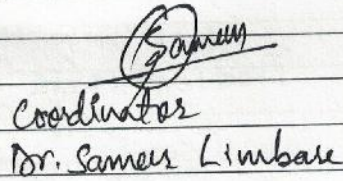 Coordinator
Dr. Sameer Limbare